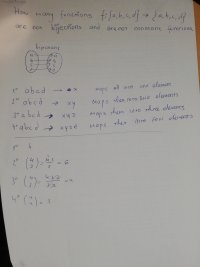 How many functions f:{a,b,c,d} → {a,b,c,d}
are not bijections and are not constant functions
1° a b c d → x maps all into one element
2° a b c d → x y maps them into two elements
3° a b c d → x y z maps them into three elements
4° a b c d → x y z d maps them into four elements
1° 4
2° (4 2) = 4·3/2 = 6
4° (4 4) = 1